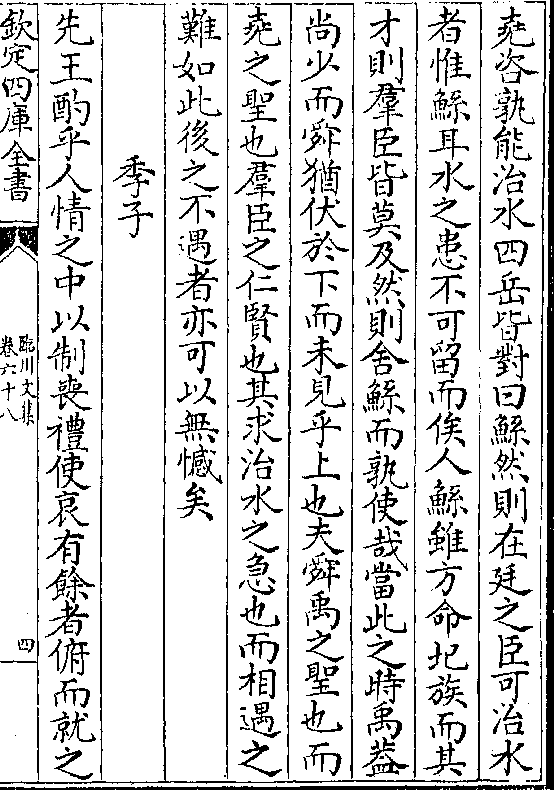 堯咨孰能治水四岳皆對曰鯀然則在廷之臣可治水
者惟鯀耳水之患不可留而俟人鯀雖方命圯族而其
才則羣臣皆莫及然則舍鯀而孰使哉當此之時禹蓋
尚少而舜猶伏於下而未見乎上也夫舜禹之聖也而
堯之聖也羣臣之仁賢也其求治水之急也而相遇之
難如此後之不遇者亦可以無憾矣
季子
先王酌乎人情之中以制喪禮使哀有餘者俯而就之
欽定四庫全書
臨川文集
卷六十八
四